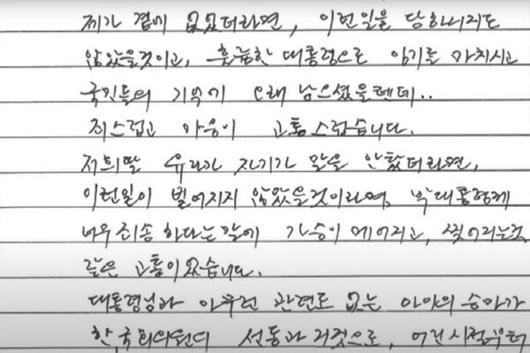 제가 곁에 없었더라면, 이런일을 당하시지도
않았을것이고, 훌륭한 대통령으로 임기를 마치시고
국민들의 기억에 오래 남으셨을텐데..
죄스럽고 마음이 고통스럽습니다.
저희딸 유라가 자기가 말을 안탔더라면,
이런일이 벌어지지 않았을것이라며, 박대통령께
너무 죄송 하다는 말에 가슴이 메어지고, 찢어지는것
같은 고통이 있습니다.
대통령님과 아무런 관련도 없는 아이의 승마가
한국 선동과 거짓으로,